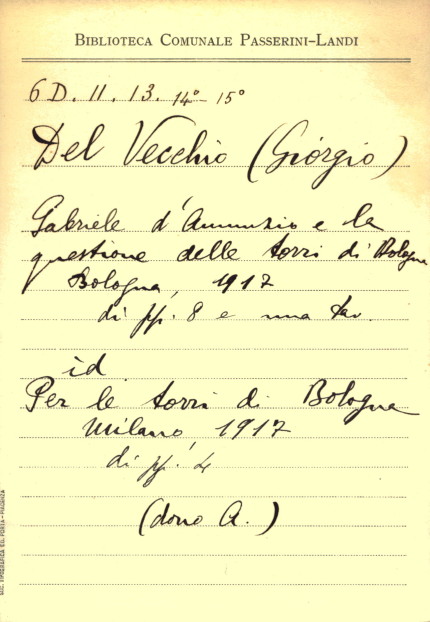 BIBLIOTECA COMUNALE PASSERINI-LANDI
6 D. II. 13. 14° - 15°
Del Vecchio (Giorgio)
Gabriele d'Annunzio e la
questione delle torri di Bologna
Bologna, 1917
di pp. 8 e una tav.
id
Per le torri di Bologna
Milano, 1917
di pp. 4
(dono A.)